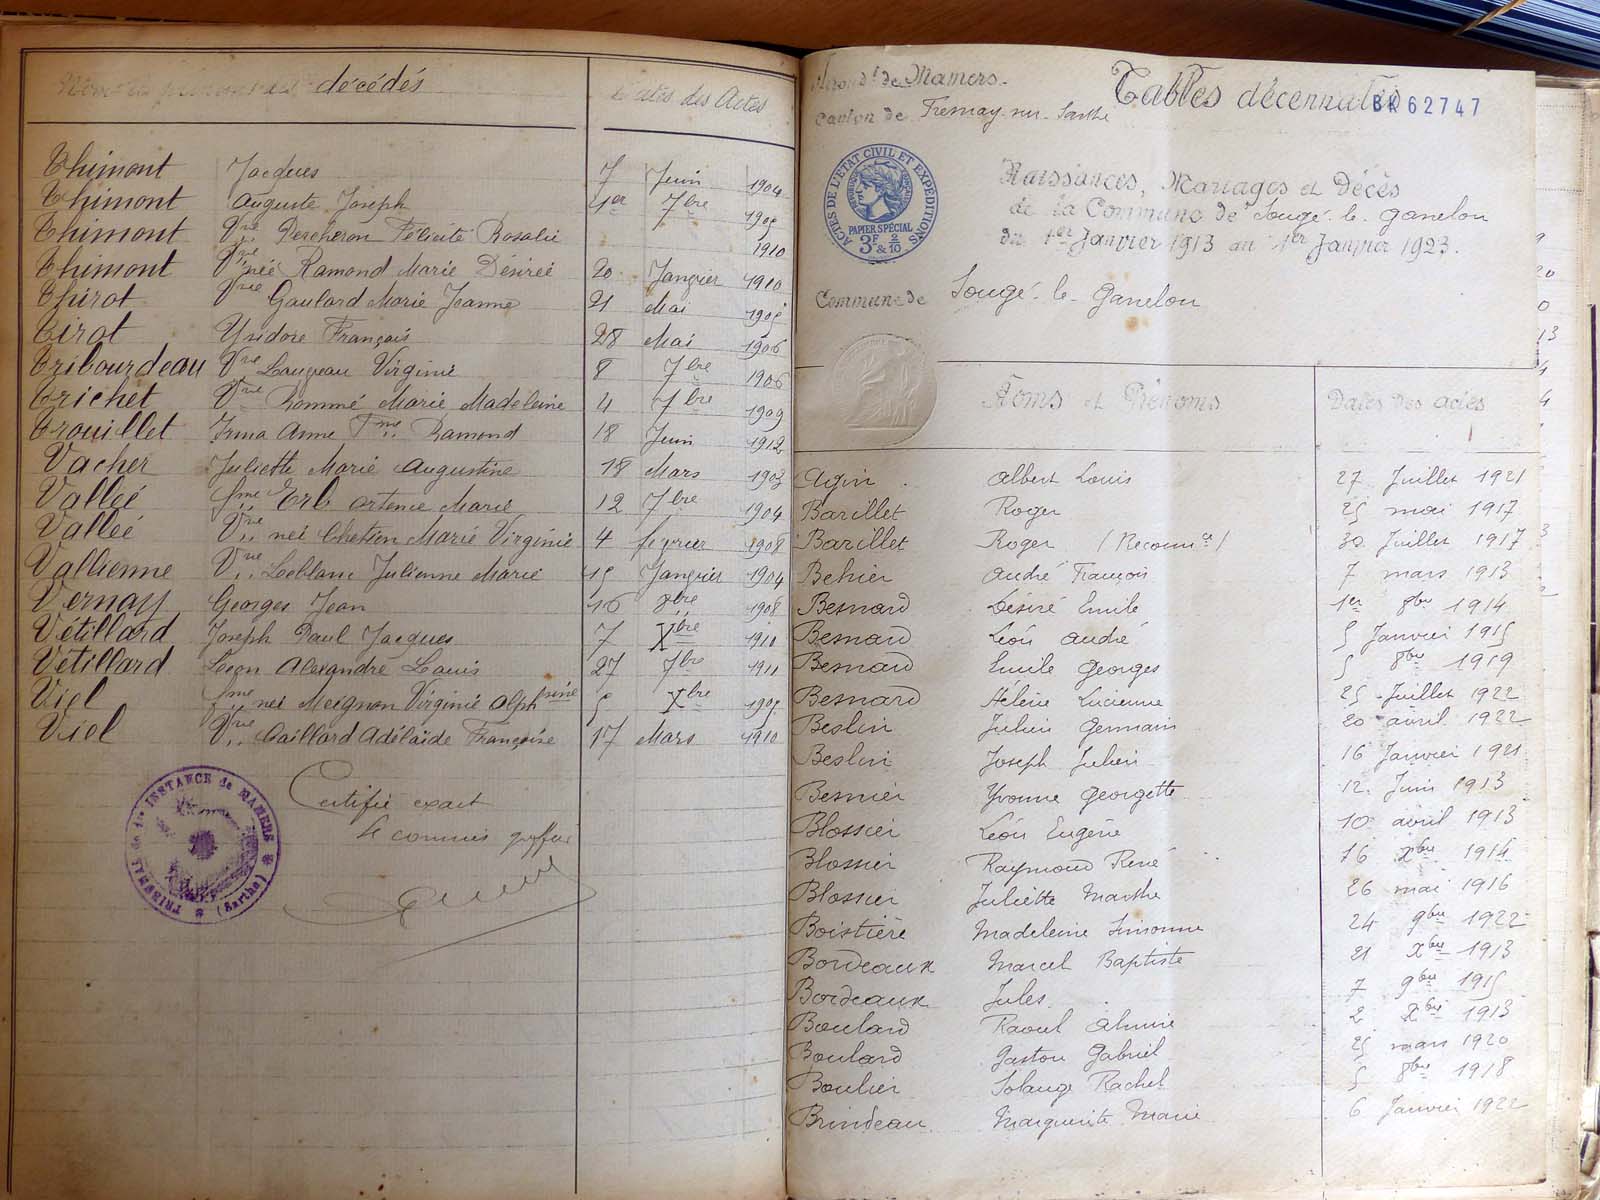 Noms et prénoms des décédés
Dates des Actes
Thimont Jacques 7 Juin 1904
Thimont Auguste Joseph 1er 7bre 1905
Thimont Vve Percheron Félicité Rosalie 1910
Thimont Vve née Ramond Marie Désirée 20 Janvier 1910
Thirot Vve Gaulard Marie Jeanne 21 Mai 1905
Tirot Ysidore François 28 Mai 1906
Tribourdeau Vve Lauzeau Virginie 8 7bre 1906
Trichet Vve Rommé Marie Madeleine 4 7bre 1909
Trouillet Irma Anne Fme Ramond 18 Juin 1912
Vacher Juliette Marie Augustine 18 Mars 1903
Vallée fme Erb Artence Marie 12 7bre 1904
Vallée Vve née Chetien Marie Virginie 4 fevrier 1908
Vallienne Vve Leblanc Julienne Marie 15 Janvier 1904
Vernay Georges Jean 16 8bre 1908
Vétillard Joseph Paul Jacques 7 Xbre 1910
Vétillard Leon Alexandre Louis 27 7bre 1911
Viel fme née Meignan Virginie Alphsine 5 Xbre 1905
Viel Vve Gaillard Adélaïde Françoise 17 Mars 1910
Certifié exact
Le commis greffier
TRIBUNAL de 1re INSTANCE de MAMERS
(Sarthe)
Arrondt de Mamers.
Tables décennales
BK 62747
Canton de Fresnay-sur-Sarthe
ACTES DE L'ETAT CIVIL ET EXPEDITIONS
PAPIER SPÉCIAL
3F & 2/10
Naissances, Mariages et Décès
de la Commune de Sougé-le-Ganelon
du 1er Janvier 1913 au 1er Janvier 1923.
Commune de Sougé-le-Ganelon
Noms et Prénoms
Dates des actes
Agin Albert Louis 27 Juillet 1921
Barillet Roger 25 mai 1917
Barillet Roger (Reconnce) 30 Juillet 1917
Behier André François 7 mars 1913
Besnard Désiré Emile 1er 8bre 1914
Besnard Léon André 5 Janvier 1915
Besnard Emile Georges 5 8bre 1919
Besnard Hélène Lucienne 25 Juillet 1922
Beslin Julien Germain 20 avril 1922
Beslin Joseph Julien 16 Janvier 1921
Besnier Yvonne Georgette 12 Juin 1913
Blossier Léon Eugène 10 avril 1913
Blossier Raymond René 16 Xbre 1914
Blossier Juliette Marthe 26 mai 1916
Boistière Madeleine Simonne 24 9bre 1922
Bordeaux Marcel Baptiste 21 Xbre 1913
Bordeaux Jules 7 9bre 1915
Boulard Raoul Almire 2 Xbre 1913
Boulard Gaston Gabriel 25 mars 1920
Boulier Solange Rachel 5 8bre 1918
Brindeau Marguerite Marie 6 Janvier 1922